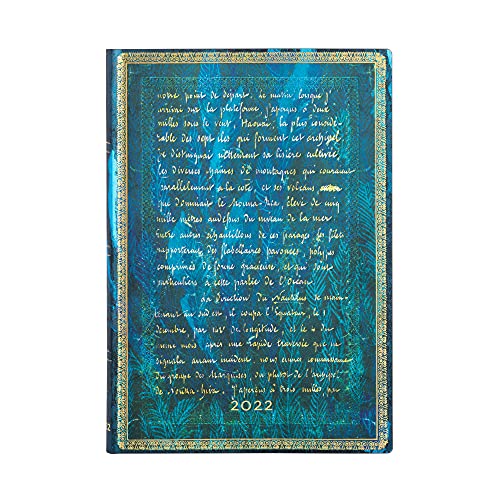 notre point de départ. Le matin lorsque j'
arrivai sur la plateforme, j'aperçus à deux
milles sous le vent, Haouaï, la plus considé-
rable des sept îles qui forment cet archipel
je distinguai nettement sa lisière cultivée,
les diverses chaînes de montagnes qui couraient
parallèlement à la côte, et ses volcans
que dominant le Mouna-Réa, élevé de cinq
mille mètres au-dessus du niveau de la mer
entre autres échantillons de ces parages les filets
rapportèrent des flabellaires pavonées, polypes
comprimés de forme gracieuse, et qui sont
particuliers à cette partie de l'Océan.
La direction du Nautilus se main-
tenant au sud-est, il coupa l'Équateur, le 1
décembre, par 142° de longitude, et le 4 du
même mois, après une rapide traversée que ne
signala aucun incident, nous eûmes connaissance
du groupe des Marquises,
de Nouka-hiva. J'aperçus à trois milles par
2022